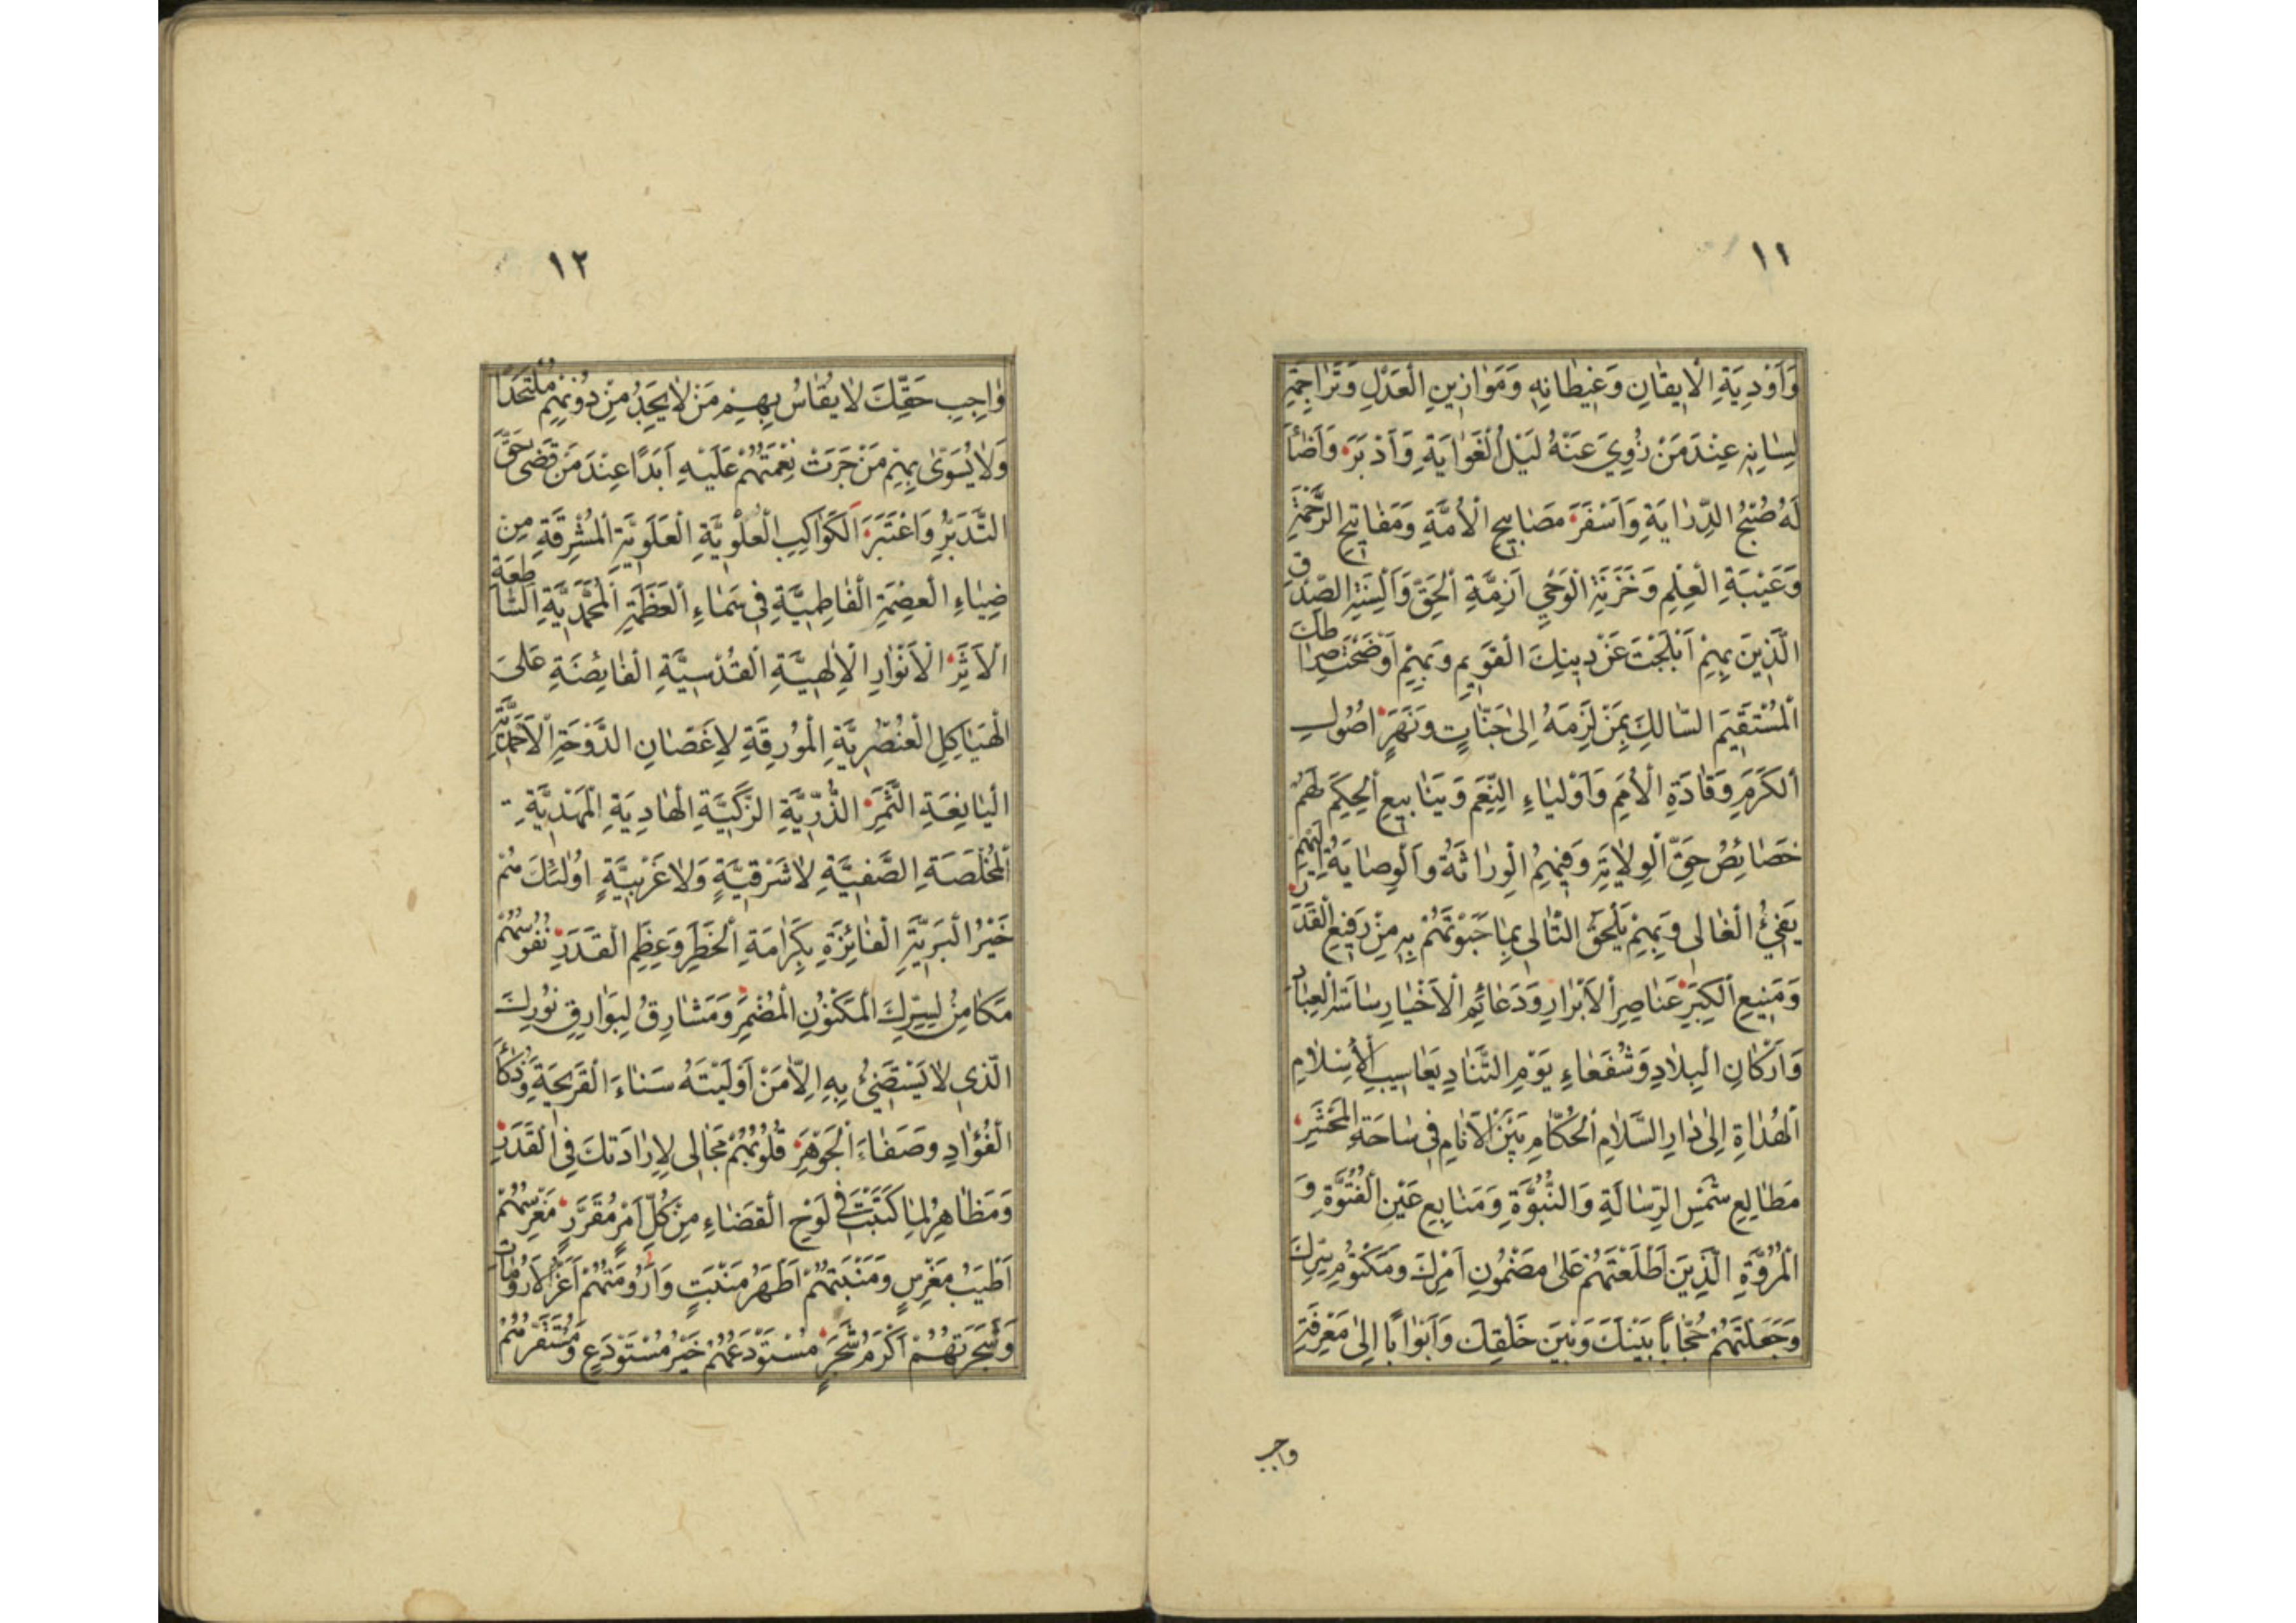 ١١
وَاَوْدِيَةِ الْاِيقٰانِ وَغِيطٰانِهِ وَمَوٰازِينِ الْعَدْلِ وَتَرٰاجِمَةِ
لِسٰانِهِ عِنْدَ مَنْ زُوِيَ عَنْهُ لَيْلُ الْغَوٰايَةِ وَاَدْبَرَ وَاَضٰاۤءَ
لَهُ صُبْحُ الدِّرٰايَةِ وَاَسْفَرَ مَصٰابِيحِ الْاُمَّةِ وَمَفٰاتِيحِ الرَّحْمَةِ
وَعَيْبَةِ الْعِلْمِ وَخَزَنَةِ الْوَحْيِ اَزِمَّةِ الْحَقِّ وَاَلْسِنَةِ الصِّدْقِ
الَّذِينَ بِهِمْ اَبْلَجْتَ عَنْ دِينِكَ الْقَوِيمِ وَبِهِمْ اَوْضَحْتَ صِرٰاطَكَ
الْمُسْتَقِيمَ السّٰالِكَ بِمَنْ لَزِمَهُ اِلىٰ جَنّٰاتٍ وَنَهَرٍ اُصُولِ
الْكَرَمِ وَقٰادَةِ الْاُمَمِ وَاَوْلِيٰاءِ النِّعَمِ وَيَنٰابِيعِ الْحِكَمِ لَهُمْ
خَصٰائِصُ حَقِّ الْوِلٰايَةِ وَفِيهِمُ الْوِرٰاثَةُ وَالْوِصٰايَةُ اِلَيْهِمْ
يَفِيۤءُ الْغٰالى وَبِهِمْ يَلْحَقُ التّٰالى بِمٰا حَبَوْتَهُمْ بِهِ مِنْ رَفِيعِ الْقَدَرِ
وَمَنِيعِ الْكِبَرِ عَنٰاصِرِ الْاَبْرٰارِ وَدَعٰائِمِ الْاَخْيٰارِ سٰاسَةِ الْعِبٰادِ
وَاَرْكٰانِ الْبِلٰادِ وَشُفَعٰاءِ يَوْمِ التَّنٰادِ يَعٰاسِيبِ الْاِسْلٰامِ
الْهُدٰاةِ اِلىٰ دٰارِ السَّلٰامِ الْحُكّٰامِ بَيْنَ الْاَنٰامِ فى سٰاحَةِ الْمَحْشَرِ
مَطٰالِعِ شَمْسِ الرِّسٰالَةِ وَالنُّبُوَّةِ وَمَنٰابِعِ عَيْنِ الْفُتُوَّةِ وَ
الْمُرُوَّةِ الَّذِينَ اَطْلَعْتَهُمْ عَلىٰ مَضْمُونِ اَمْرِكَ وَمَكْتُومِ سِرِّكَ
وَجَعَلْتَهُمْ حُجّٰاباً بَيْنَكَ وَبَيْنَ خَلْقِكَ وَاَبْوٰابًا اِلىٰ مَعْرِفَةِ
واجب
١٢
وٰاجِبِ حَقِّكَ لٰا يُقٰاسُ بِهِمْ مَنْ لٰا يَجِدُ مِنْ دُونِهِمْ مُلْتَحَدًا
وَلٰا يُسَوّىٰ بِهِمْ مَنْ جَرَتْ نِعْمَتُهُمْ عَلَيْهِ اَبَدًا عِنْدَ مَنْ قَضىٰ حَقَّ
التَّدَبُّرِ وَاعْتَبَرَ اَلْكَوٰاكِبِ الْعُلْوِيَّةِ الْعَلَوِيَّةِ الْمُشْرِقَةِ مِنْ
ضِيٰاءِ الْعِصْمَةِ الْفٰاطِمِيَّةِ فى سَمٰاءِ الْعَظَمَةِ الْمُحَمَّدِيَّةِ السّٰاطِعَةِ
الْاَثَرِ الْاَنْوٰارِ الْاِلٰهِيَّةِ الْقُدْسِيَّةِ الْفٰائِضَةِ عَلىَ
الْهَيٰاكِلِ الْعُنْصُرِيَّةِ الْمُورِقَةِ لِاَغْصٰانِ الدَّوْحَةِ الْاَحْمَدِيَّةِ
الْيٰانِعَةِ الثَّمَرِ الذُّرِّيَّةِ الزَّكِيَّةِ الْهٰادِيَةِ الْمَهْدِيَّةِ
الْمُخْلَصَةِ الصَّفِيَّةِ لٰا شَرْقِيَّةٍ وَلٰا غَرْبِيَّةٍ اُولٰئِكَ هُمْ
خَيْرُ الْبَرِيَّةِ الْفٰائِزَةِ بِكَرٰامَةِ الْخَطَرِ وَعِظَمِ الْقَدَرِ نُفُوسُهُمْ
مَكٰامِنُ لِسِرِّكَ الْمَكْنُونِ الْمُضْمَرِ وَمَشٰارِقُ لِبَوٰارِقِ نُورِكَ
الَّذى لٰا يَسْتَضِيۤءُ بِهِ اِلّٰا مَنْ اَوْلَيْتَهُ سَنٰاءَ الْقَرِيحَةِ وَذَكٰاءَ
الْفُؤٰادِ وَصَفٰاءَ الْجَوْهَرِ قُلُوبُهُمْ مَجٰالى لِاِرٰادَتِكَ فِى الْقَدَرِ
وَمَظٰاهِرُ لِمٰا كَتَبْتَ فى لَوْحِ الْقَضٰاءِ مِنْ كُلِّ اَمْرٍ مُقَرَّرٍ مَغْرِسُهُمْ
اَطْيَبُ مَغْرِسٍ وَمَنْبَتُهُمْ اَطْهَرُ مَنْبَتٍ وَاَرُومَتُهُمْ اَعَزُّ الْاَرُومٰاتِ
وَشَجَرَتُهُمْ اَكْرَمُ شَجَرٍ مُسْتَوْدَعُهُمْ خَيْرُ مُسْتَوْدَعٍ وَمُسْتَقَرُّهُمْ